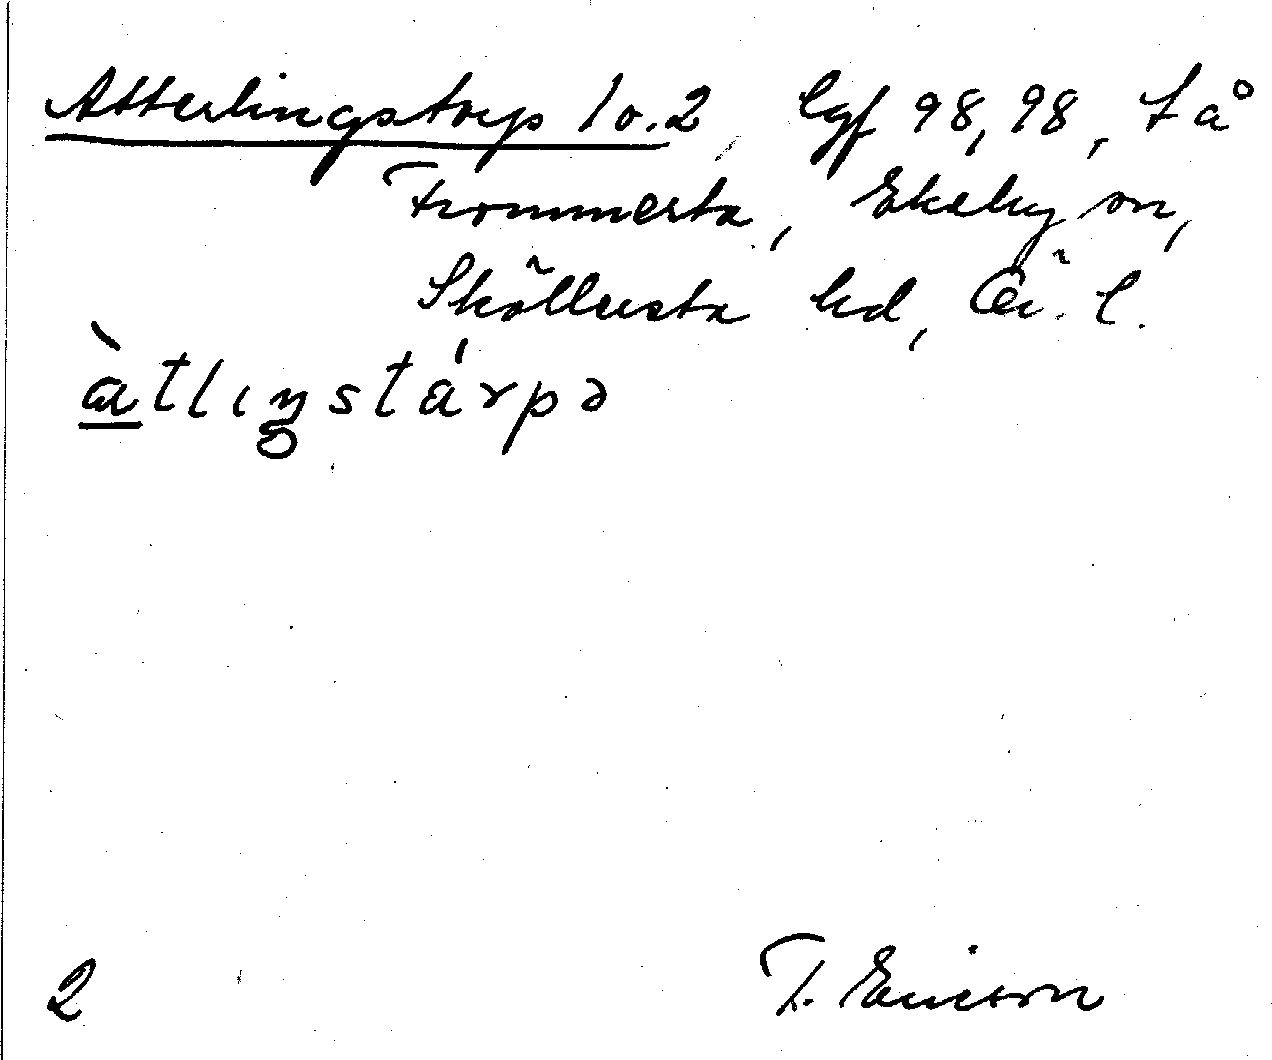 Atterlingstorp 1 o. 2, lgf 98, 98, t å
Frommesta, Ekeby sn,
Sköllersta hd, Ör. l.
àtlıŋstárpə
2 T. Ericson